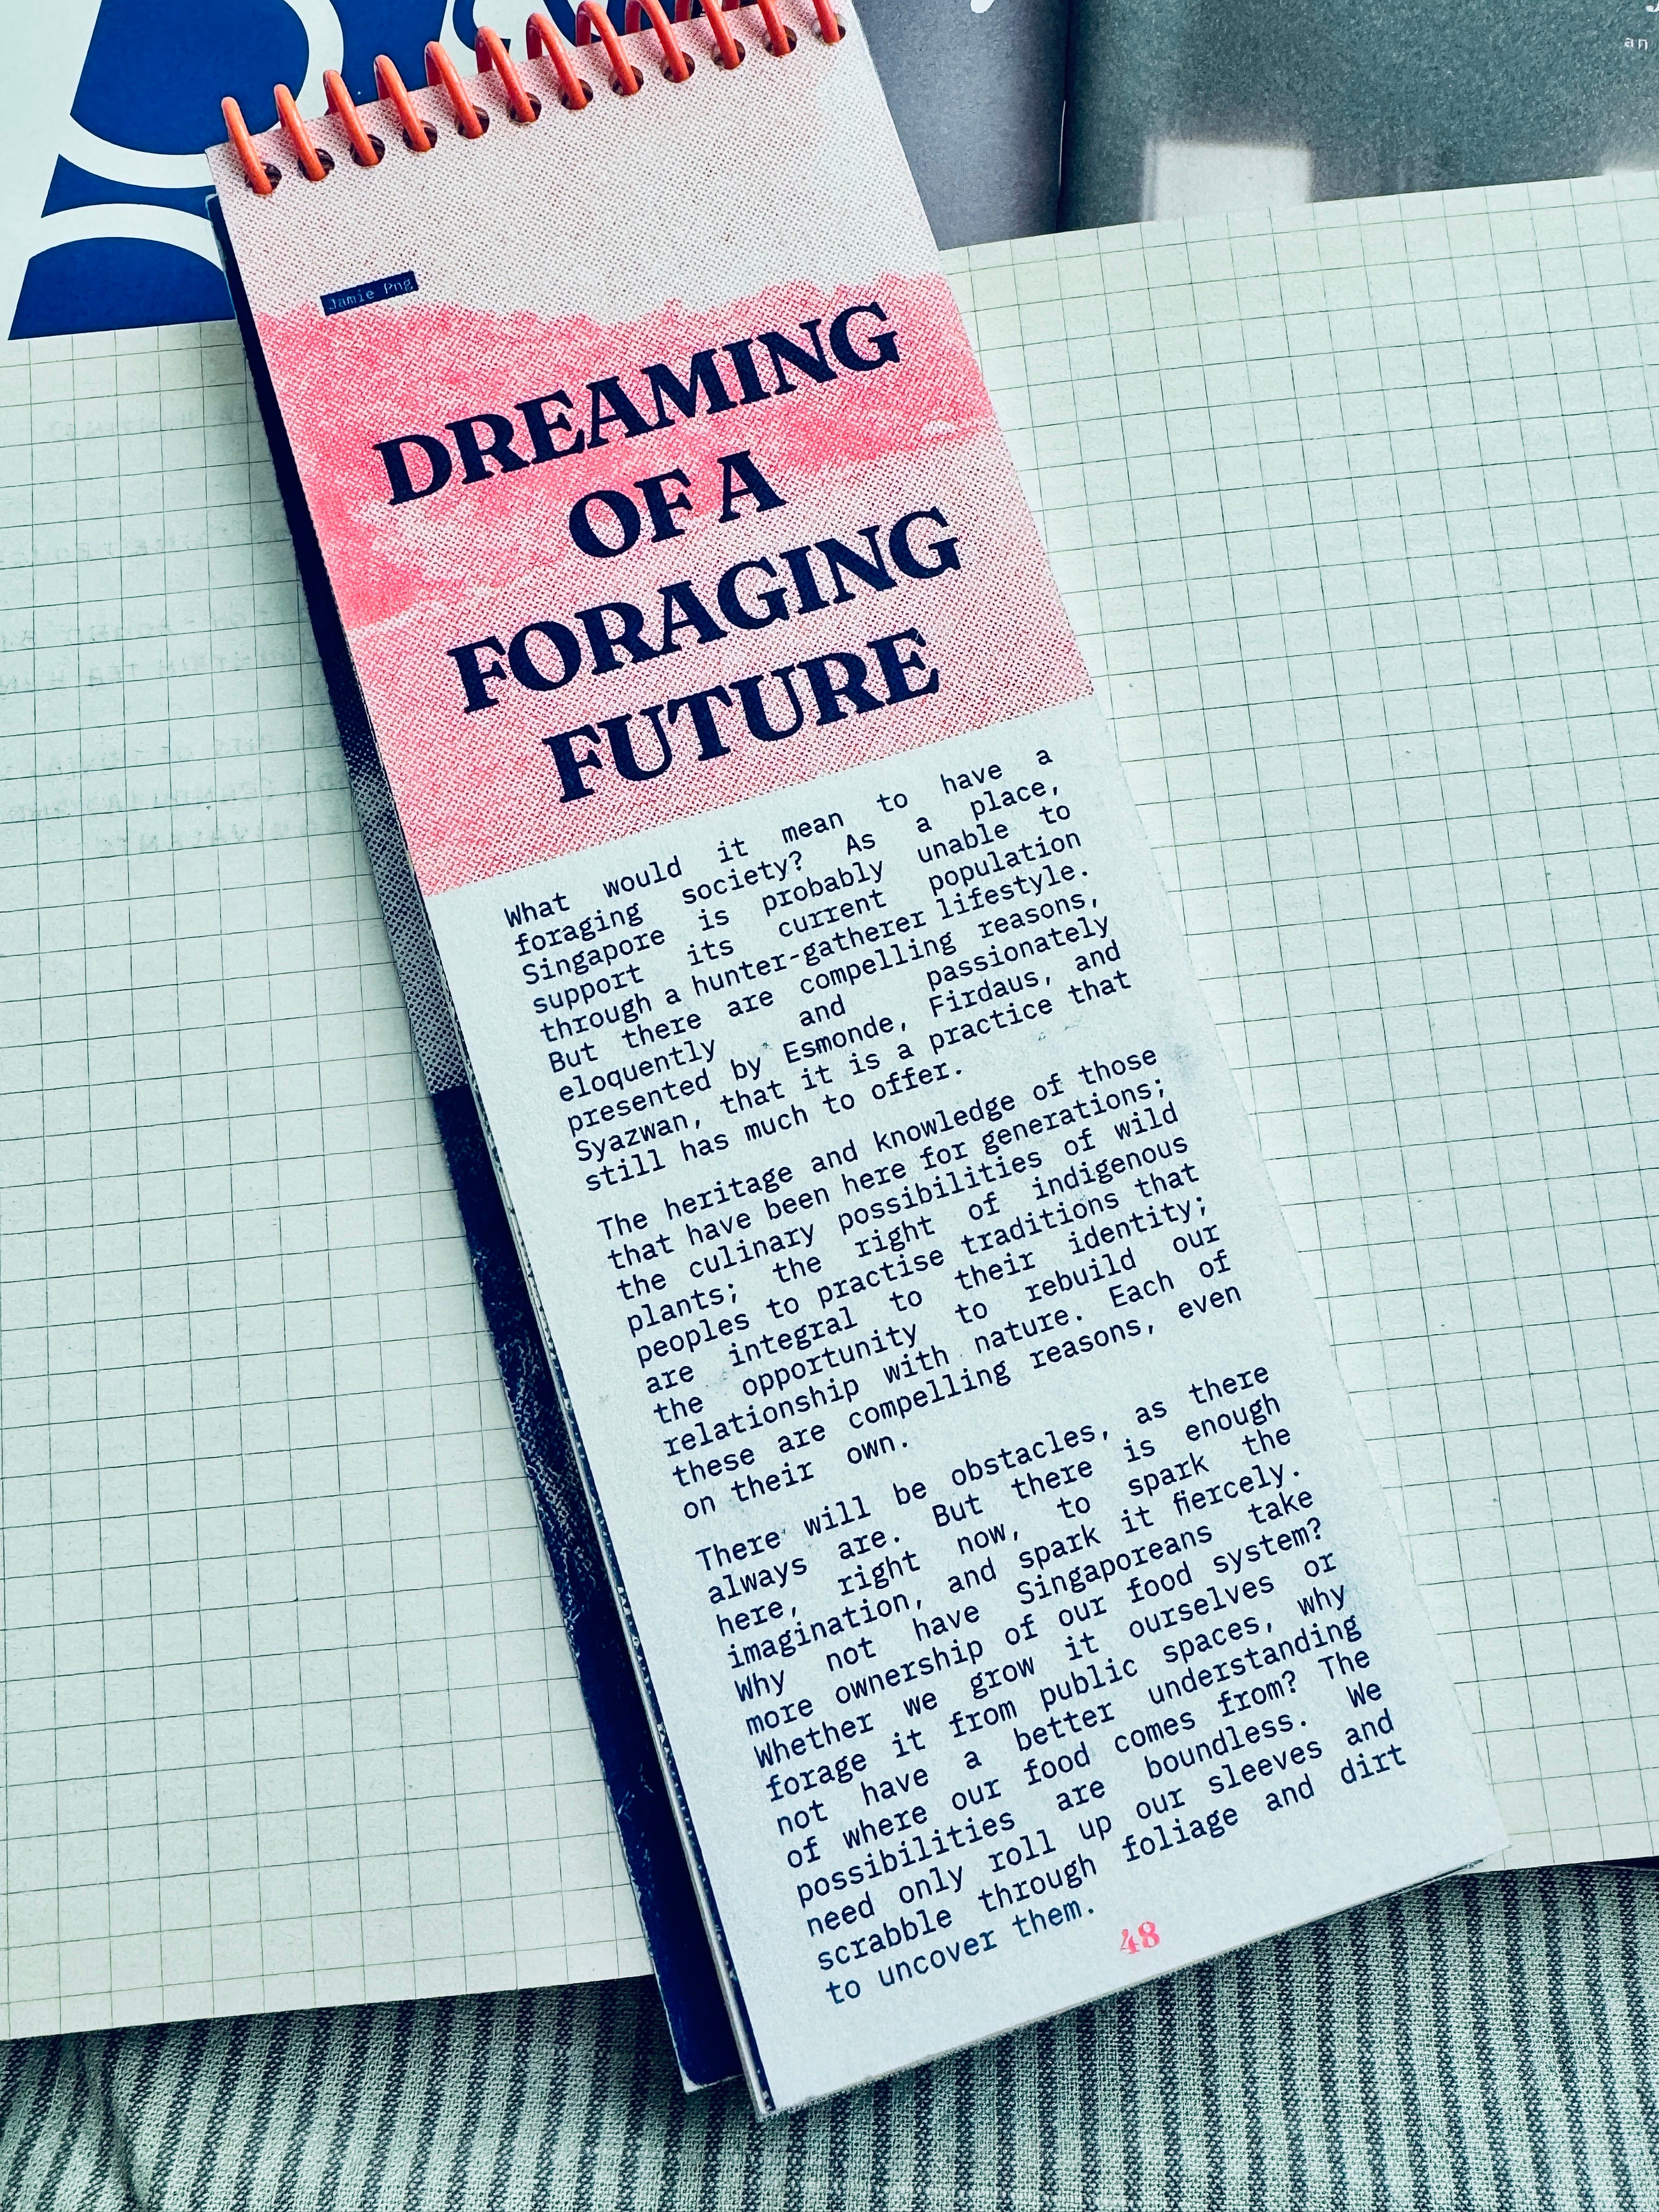 an
Jamie Png
DREAMING
OF A
FORAGING
FUTURE
What would it mean to have a
foraging society? As a place,
Singapore is probably unable to
support its current population
through a hunter-gatherer lifestyle.
But there are compelling reasons,
eloquently and passionately
presented by Esmonde, Firdaus, and
Syazwan, that it is a practice that
still has much to offer.
The heritage and knowledge of those
that have been here for generations;
the culinary possibilities of wild
plants; the right of indigenous
peoples to practise traditions that
are integral to their identity;
the opportunity to rebuild our
relationship with nature. Each of
these are compelling reasons, even
on their own.
There will be obstacles, as there
always are. But there is enough
here, right now, to spark the
imagination, and spark it fiercely.
Why not have Singaporeans take
more ownership of our food system?
Whether we grow it ourselves or
forage it from public spaces, why
not have a better understanding
of where our food comes from? The
possibilities are boundless. We
need only roll up our sleeves and
scrabble through foliage and dirt
to uncover them.
48